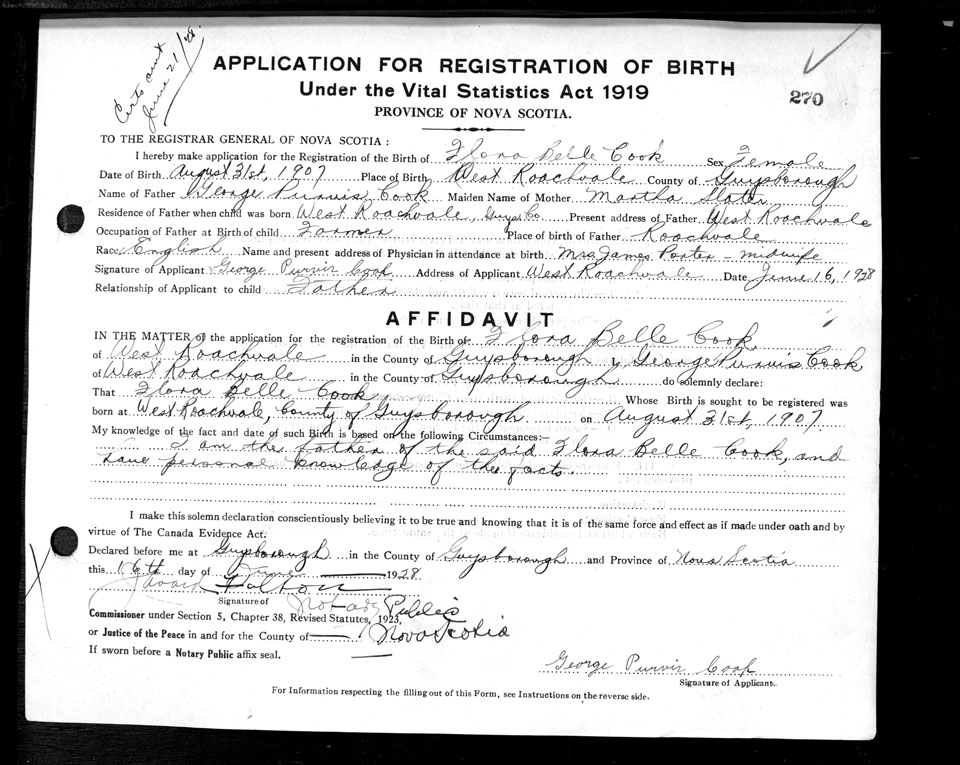 Certs sent
June 21/28.
APPLICATION FOR REGISTRATION OF BIRTH
Under the Vital Statistics Act 1919
270
PROVINCE OF NOVA SCOTIA.
TO THE REGISTRAR GENERAL OF NOVA SCOTIA :
I hereby make application for the Registration of the Birth of Flora Belle Cook Sex Female
Date of Birth August 31st, 1907 Place of Birth West Roachvale County of Guysborough
Name of Father George Purvis Cook Maiden Name of Mother Martha Slater
Residence of Father when child was born West Roachvale, Guys. Co. Present address of Father West Roachvale
Occupation of Father at Birth of child Farmer Place of birth of Father Roachvale
Race English Name and present address of Physician in attendance at birth Mrs James Porter - midwife
Signature of Applicant George Purvis Cook Address of Applicant West Roachvale Date June 16, 1928
Relationship of Applicant to child Father
AFFIDAVIT
IN THE MATTER of the application for the registration of the Birth of Flora Belle Cook
of West Roachvale in the County of Guysborough I, George Purvis Cook
of West Roachvale in the County of Guysborough do solemnly declare:
That Flora Belle Cook Whose Birth is sought to be registered was
born at West Roachvale, County of Guysborough on August 31st, 1907
My knowledge of the fact and date of such Birth is based on the following Circumstances:—
I am the father of the said Flora Belle Cook, and
have personal knowledge of the facts.
I make this solemn declaration conscientiously believing it to be true and knowing that it is of the same force and effect as if made under oath and by
virtue of The Canada Evidence Act.
Declared before me at Guysborough in the County of Guysborough and Province of Nova Scotia
this 16th day of June 1928
Fulton
Signature of Notary Public
Commissioner under Section 5, Chapter 38, Revised Statutes, 1923,
or Justice of the Peace in and for the County of Nova Scotia
If sworn before a Notary Public affix seal.
George Purvis Cook
Signature of Applicant.
For Information respecting the filling out of this Form, see Instructions on the reverse side.